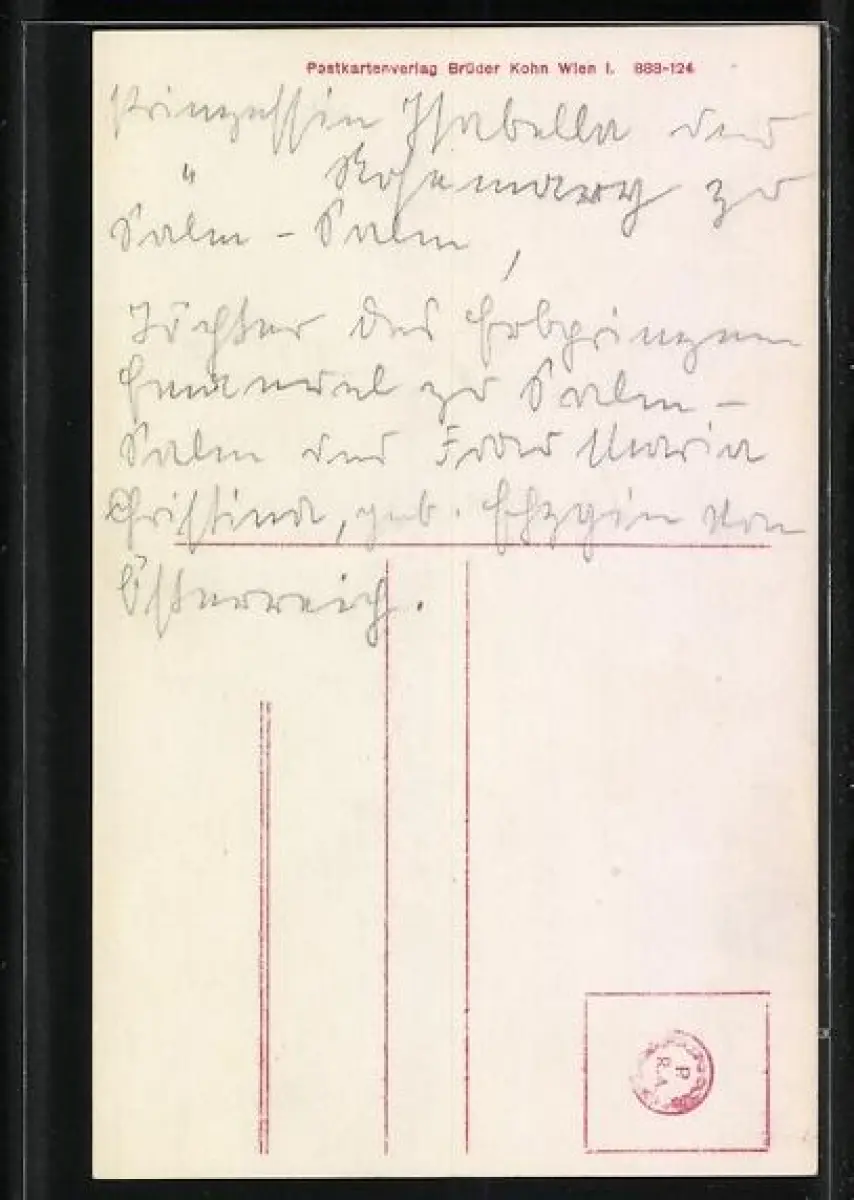 Postkartenverlag Brüder Kohn Wien I. 888-124
Prinzessin Isabella und
" Rosemary zu
Salm - Salm,
Töchter des Erbprinzen
Emanuel zu Salm -
Salm und Frau Maria
Christina, geb. Erzgin von
Österreich.
P.
R.A.